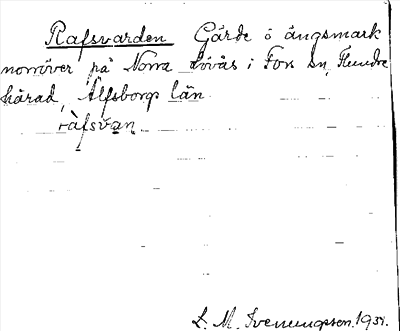 Rafsvarden Gärde o ängsmark
norröver på Norra i Fors sn, Flundre
härad, Älfsborgs län
ràfsvan
L. M. Svenungsson. 1934.